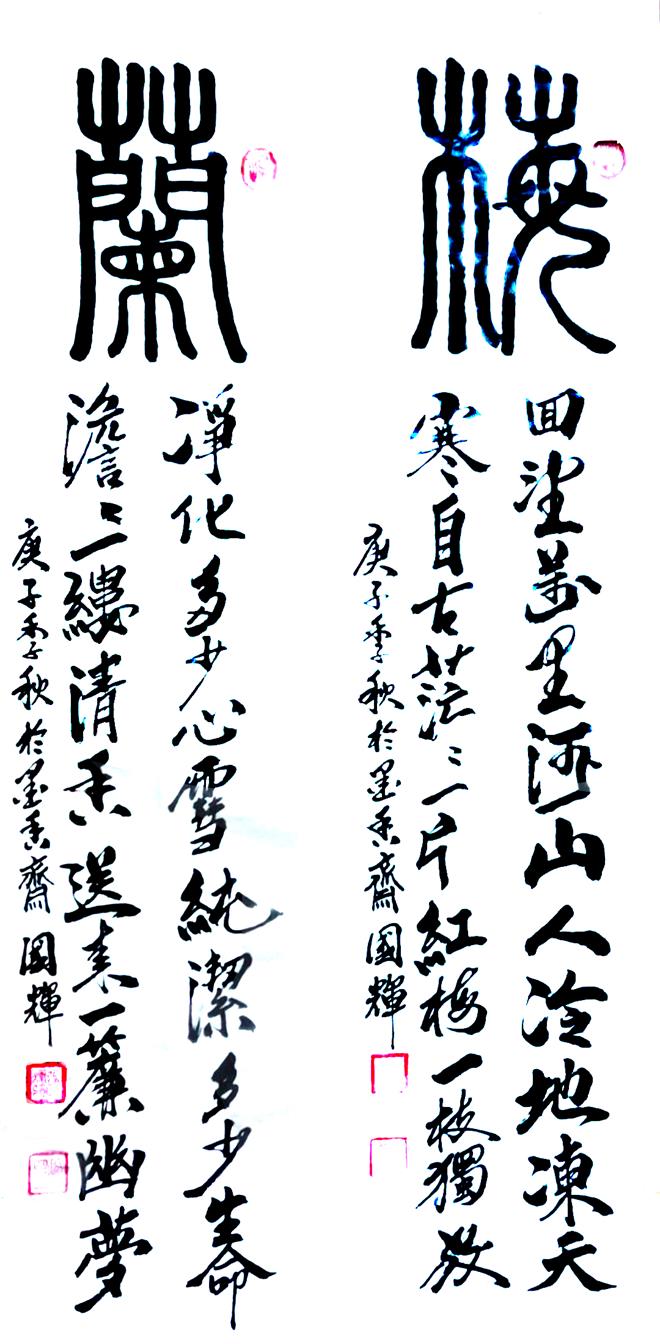 梅
回望萬里河山人冷地凍天
寒自古茫〻一片紅梅一枝獨放
庚子季秋於墨香齋國輝
蘭
淨化多少心雪純潔多少生命
澹〻一縷清香送来一簾幽夢
庚子季秋於墨香齋國輝